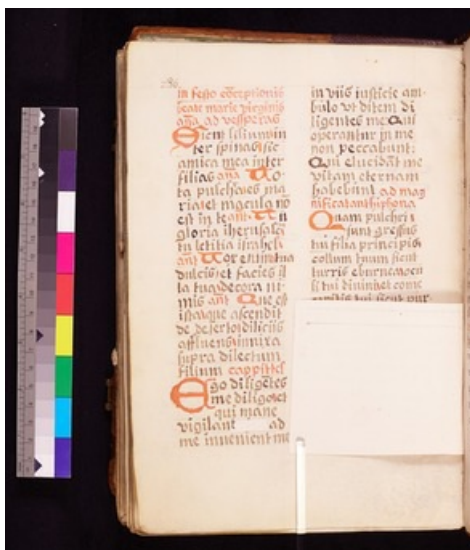 in festo conceptionis
beate marie virginis
ana ad vesperas
Sicut lilium in
ter spinas sic
amica mea inter
filias ana To
ta pulchra es ma
ria et macula no
est in te ant Tu
gloria iherusale
tu letitia israhel
ant Vox enim tua
dulcis et facies
tua decora ni
mis ant Que est
ista que ascendit
de deserto diliciis
affluens innixa
supra dilectum
filium cappittel
Ego diligetes
me diligo et
qui mane
vigilant ad
me invenient me
in viis iusticie am
bulo vt ditem di
ligentes me Qui
operantur in me
non peccabunt
Qui elucidat me
vitam eternam
habebunt ad mag
nificat antiphona
Quam pulchri
sunt gressus
tui filia principis
collum tuum sicut
turris eburnea
tui divini et come